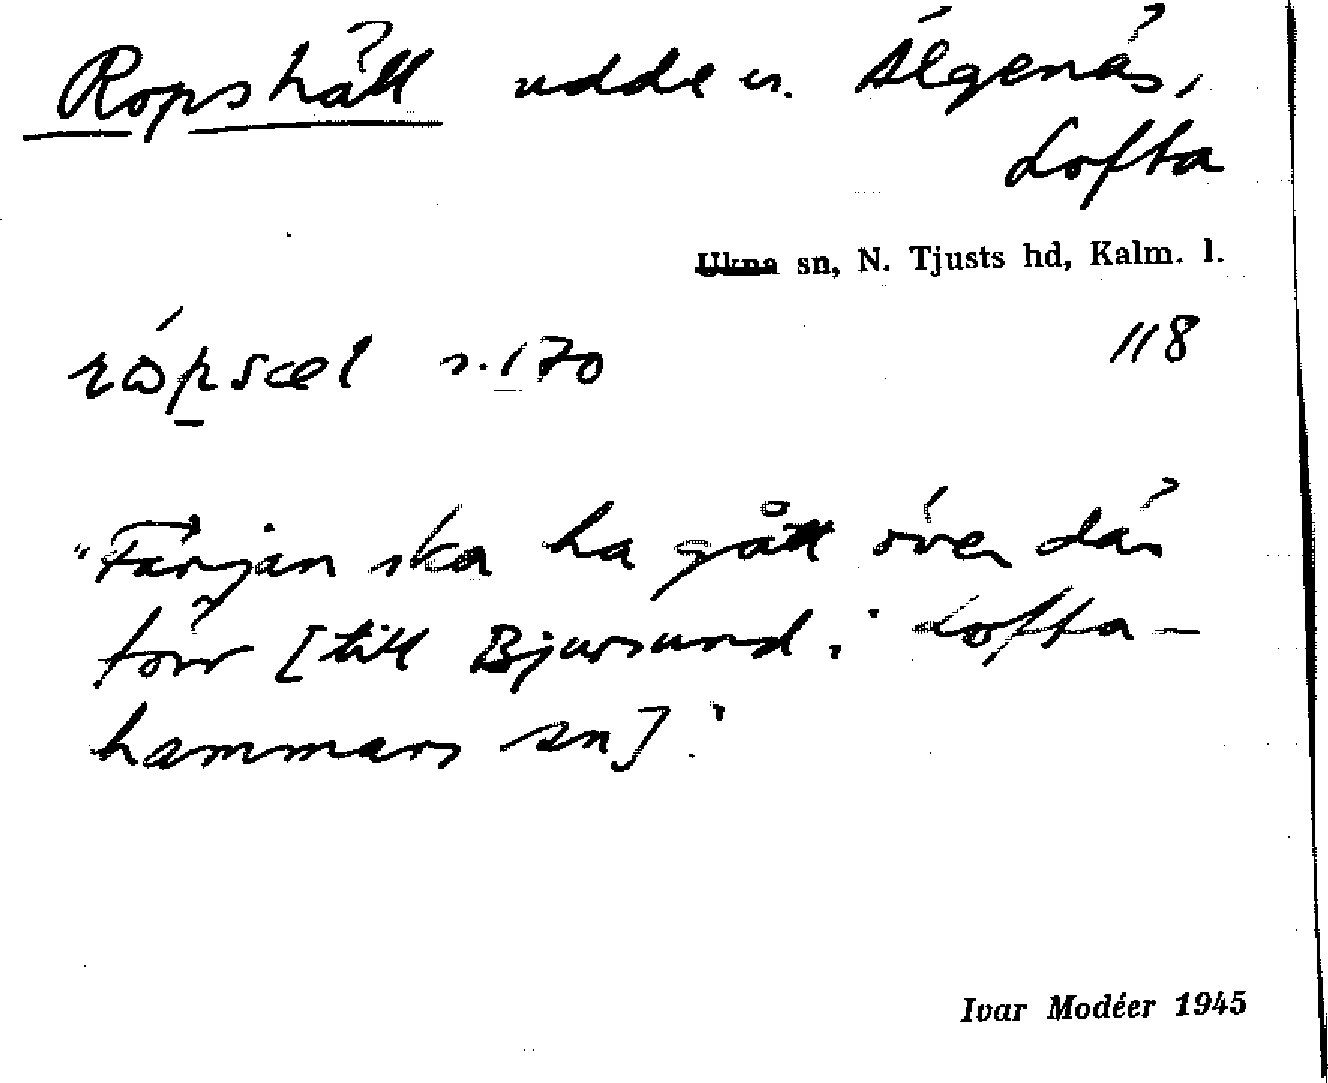 Ropshäll udde u. Älgenäs,
Lofta
Ukna sn, N. Tjusts hd, Kalm. l.
118
s. 170
"Färjan ska ha gått över där
förr [till Bjursund i Lofta-
hammars sn]."
Ivar Modéer 1945